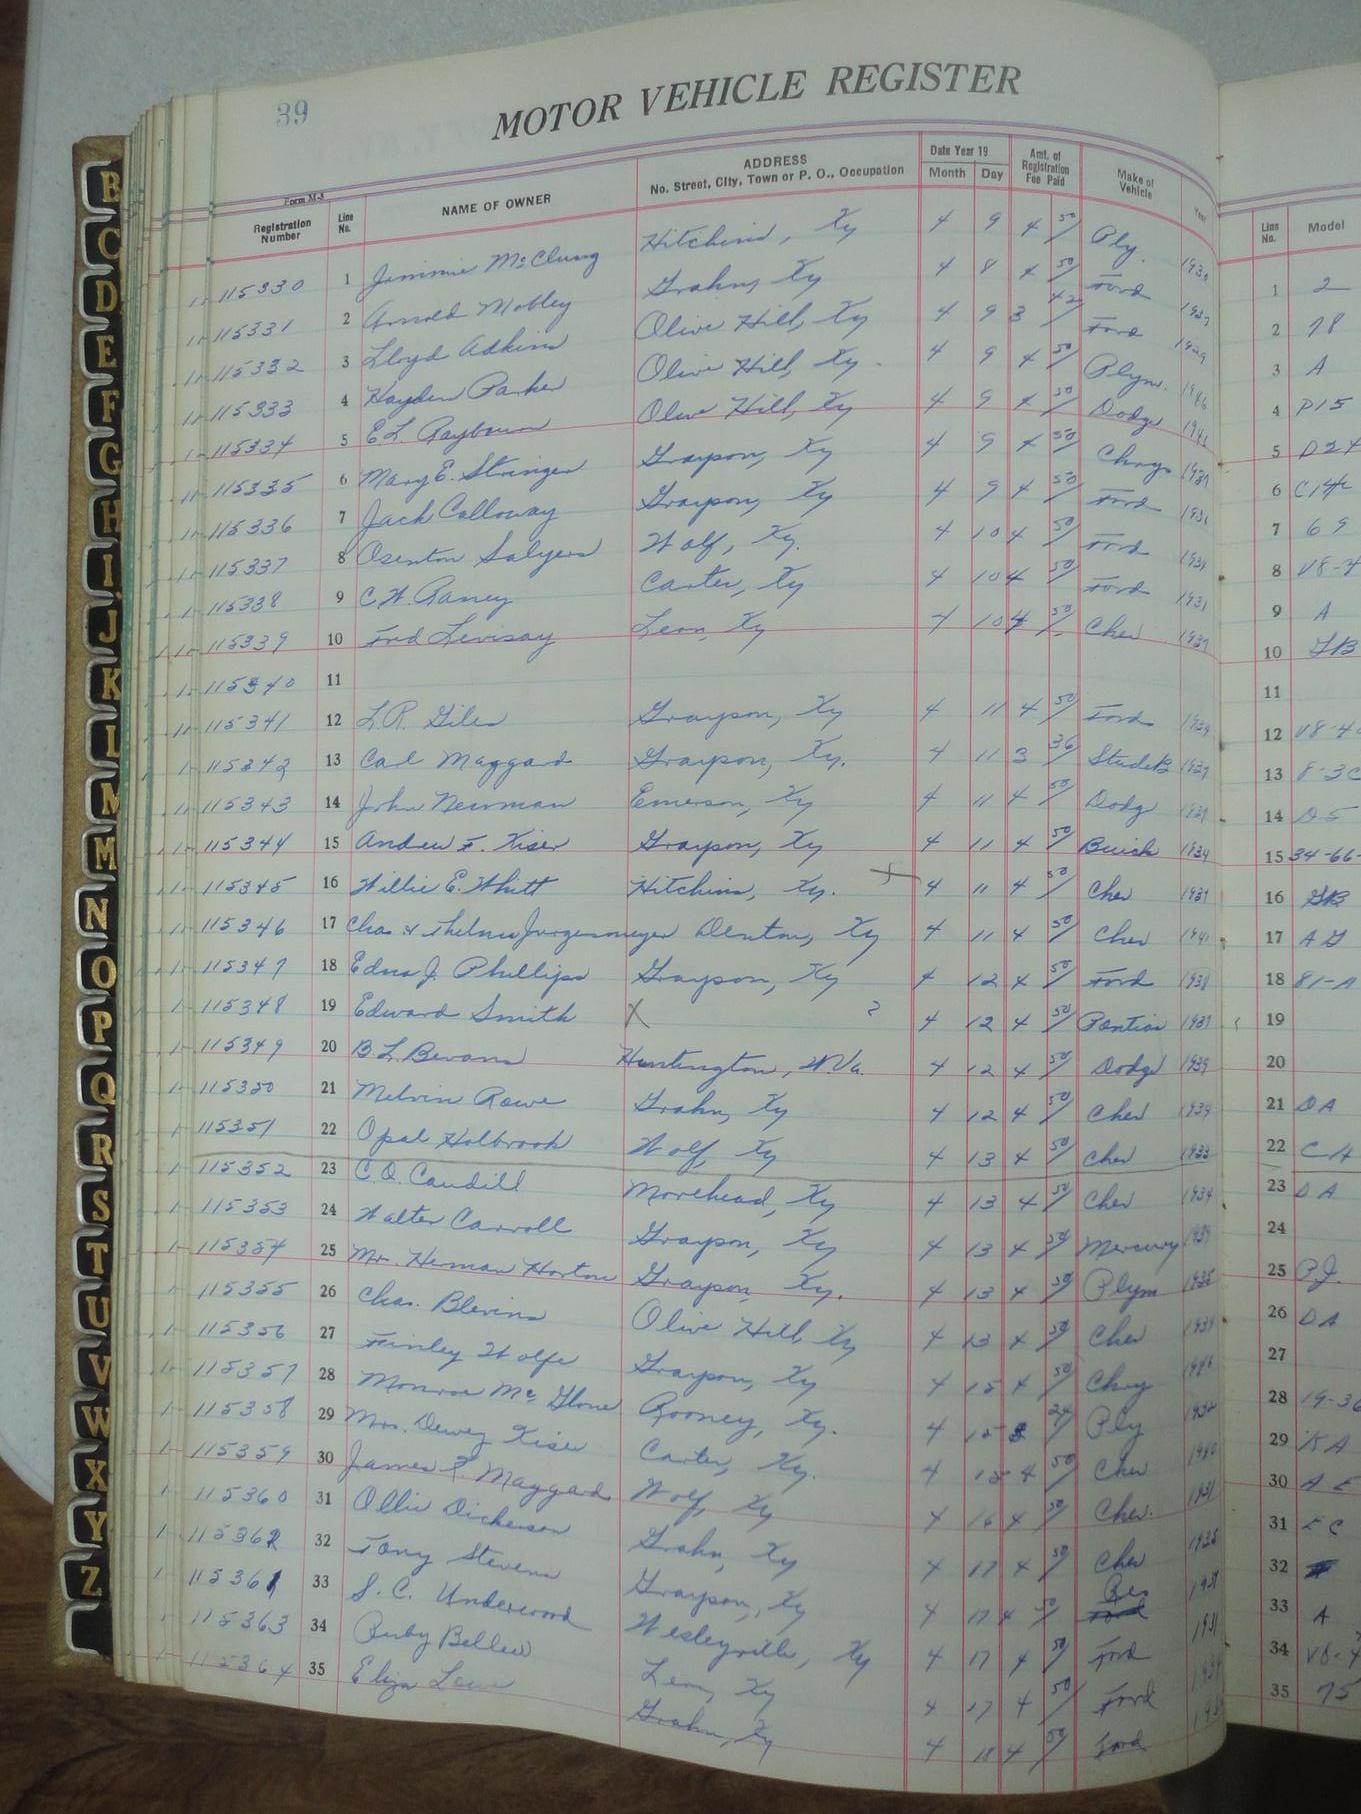 39
MOTOR VEHICLE REGISTER
Form M-3
Registration Number Line No. NAME OF OWNER ADDRESS No. Street, City, Town or P. O., Occupation Date Year 19 Month Day Amt. of Registration Fee Paid Make of Vehicle Year Line No. Model
115330 1 Jimmie McClung Hitchins, Ky 4 9 4 50 Ply. 1 2
115331 2 Arnold Mobley Grahn, Ky 4 8 4 50 Ford 1937 2 78
115332 3 Lloyd Adkins Olive Hill, Ky 4 9 3 42 Ford 1929 3 A
115333 4 Hayden Parker Olive Hill, Ky. 4 9 4 50 Plym. 1946 4 P15
115334 5 E.L. Raybourn Olive Hill, Ky 4 9 4 50 Dodge 5 D24
115335 6 Mary E. Stringer Grayson, Ky 4 9 4 50 Chrys 1937 6
115336 7 Jack Calloway Grayson, Ky 4 9 4 50 Ford 1936 7 69
115337 8 Osenton Salyers Wolf, Ky. 4 10 4 50 Ford 8
115338 9 C.W. Raney Carter, Ky 4 10 4 50 Ford 1931 9 A
115339 10 Ford Levisay Leon, Ky 4 10 4 50 Chev 1937 10 GB
115340 11 11
115341 12 L.R. Giles Grayson, Ky 4 11 4 50 Ford 1934 12
115342 13 Carl Maggard Grayson, Ky. 4 11 3 36 StudeB 1937 13
115343 14 John Newman Emerson, Ky 4 11 4 50 Dodg 1937 14 D5
115344 15 Andrew F. Kiser Grayson, Ky 4 11 4 50 Buick 1934 15 34-66-
115345 16 Willie E. Whitt Hitchins, Ky. 4 11 4 50 Chev 1937 16 GB
115346 17 Chas & Thelma Jurgensmeyer Denton, Ky 4 11 4 50 Chev 1941 17 AG
115347 18 Edna J. Phillips Grayson, Ky 4 12 4 50 Ford 1938 18 81-A
115348 19 Edward Smith X ? 4 12 4 50 Pontiac 1937 19
115349 20 B.L. Bevans Huntington, W.Va. 4 12 4 50 Dodge 1939 20
115350 21 Melvin Rowe Grahn, Ky 4 12 4 50 Chev 1934 21 DA
115351 22 Opal Holbrook Wolf, Ky 4 13 4 50 Chev 1933 22 CA
115352 23 C.O. Caudill Morehead, Ky 4 13 4 50 Chev 1934 23 DA
115353 24 Walter Carroll Grayson, Ky 4 13 4 50 Mercury 1939 24
115354 25 Mr. Herman Horton Grayson, Ky. 4 13 4 50 Plym 1935 25 PJ.
115355 26 Chas. Blevins Olive Hill Ky 4 13 4 50 Chev 1934 26 DA
115356 27 Finley Wolfe Grayson, Ky 4 15 4 50 Chry 1946 27
115357 28 Monroe McGlone Rooney, Ky. 4 15 24 Ply 28 19-36
115358 29 Mrs. Dewey Kiser Carter, Ky. 4 15 4 50 Chev 1940 29 KA
115359 30 James F. Maggard Wolf, Ky 4 16 4 50 Chev. 30
115360 31 Ollie Dickerson Grahn, Ky 4 17 4 50 Chev 1935 31 EC
115362 32 Tony Stevens Grayson, Ky 4 17 4 50 32
115361 33 S. C. Underwood Wesleyville, Ky 4 17 4 50 Ford 1931 33 A
115363 34 Ruby Bellew Leon, Ky 4 17 4 50 Ford 1934 34
115364 35 Eliza Lowe Grahn, Ky 4 18 4 50 Ford 35 75
B
C
D
E
F
G
H
I
J
K
L
M
M
N
O
P
Q
R
S
T
U
V
W
X
Y
Z